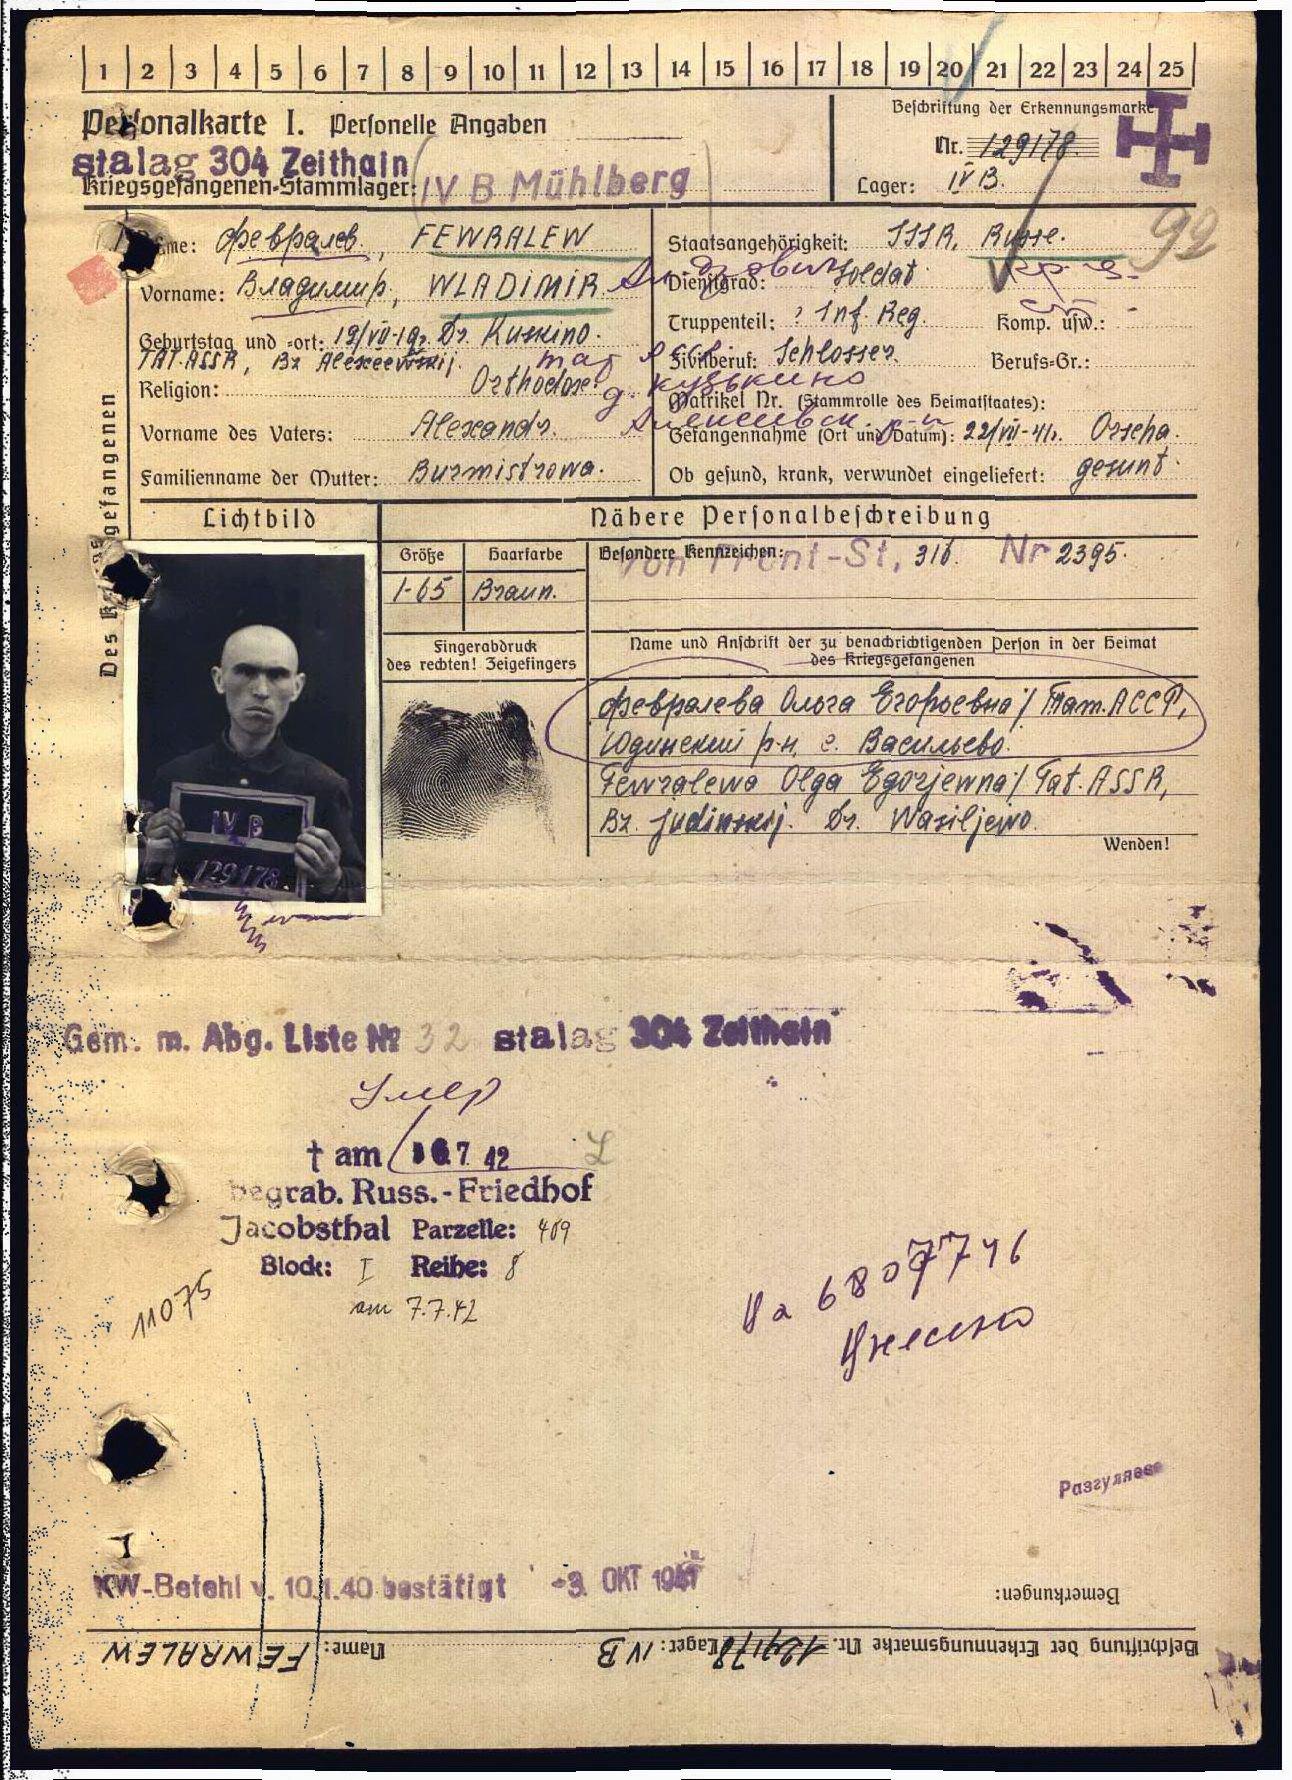 1 2 3 4 5 6 7 8 9 10 11 12 13 14 15 16 17 18 19 20 21 22 23 24 25
Personalkarte I. Personelle Angaben
Beschriftung der Erkennungsmarke
Nr. 129178.
stalag 304 Zeithain
Kriegsgefangenen-Stammlager: IV B Mühlberg
Lager: IV B.
92
Des Kriegsgefangenen
Name: Февралев, FEWRALEW
Vorname: Владимир, WLADIMIR
Geburtstag und -ort: 19/VII-19 Dr. Kuskino.
TAT. ASSR, Bz Alexeewskij.
Religion: Orthodox.
Vorname des Vaters: Alexandr.
Familienname der Mutter: Burmistrowa.
Staatsangehörigkeit: SSSR, Russe.
Dienstgrad: Soldat
Truppenteil: ? Inf. Reg. Komp. usw.:
Zivilberuf: Schlosser. Berufs-Gr.:
д. Кузькино
Matrikel Nr. (Stammrolle des Heimatstaates):
Алексеевск. р-н
Gefangennahme (Ort und Datum): 22/VII-41. Orscha.
Ob gesund, krank, verwundet eingeliefert: gesunt.
Lichtbild
Nähere Personalbeschreibung
Größe Haarfarbe
1-65 Braun.
Besondere Kennzeichen:
von Front-St. 316. Nr 2395.
Fingerabdruck
des rechten! Zeigefingers
Name und Anschrift der zu benachrichtigenden Person in der Heimat
des Kriegsgefangenen
Февралева Ольга Егорьевна/ Тат. АССР,
Юдинский р-н. с. Васильево.
Fewralewa Olga Egorjewna/ Tat. ASSR,
Bz. Judinskij. Dr. Wasiljewo.
Wenden!
IV B
129178.
Gem. m. Abg. Liste № 32 stalag 304 Zeithain
Умер
† am 6.7 42
begrab. Russ.-Friedhof
Jacobsthal Parzelle: 409
Block: I Reihe: 8
am 7.7.42
11075
Разгуляев
KW-Befehl v. 10.1.40 bestätigt -3. OKT 1941
Bemerkungen:
Beschriftung der Erkennungsmarke Nr. 129178 Lager: IV B Name: FEWRALEW